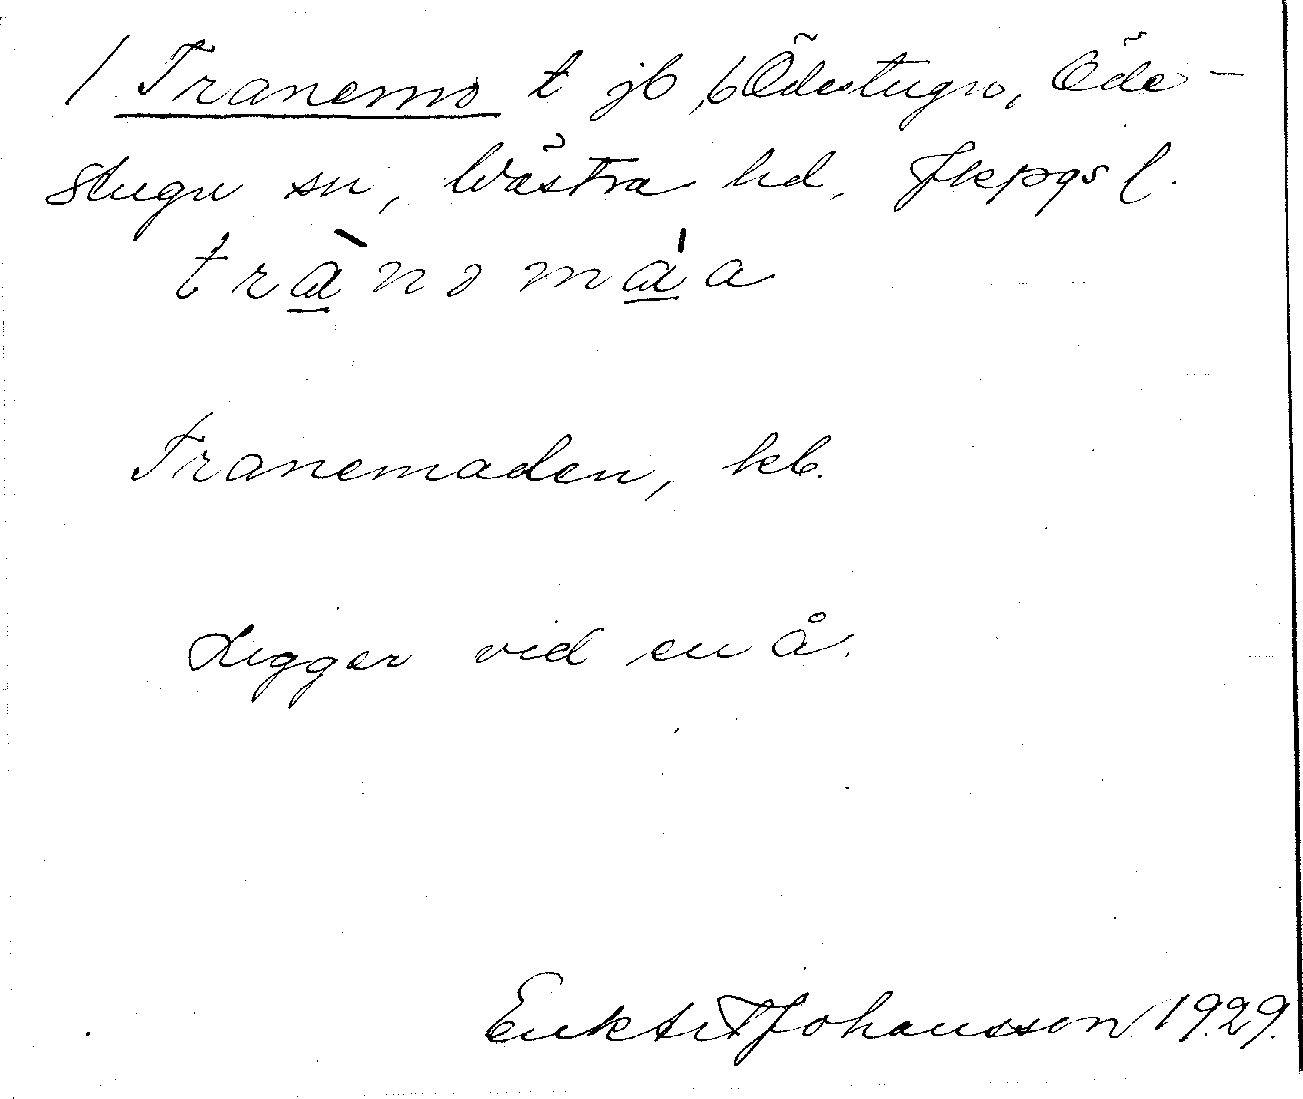 / Tranemo t jb, b Ödestugu, Öde-
stugu sn, Västra hd, Jkpgs l.
trànəmáa
Tranemaden, kb.
Ligger vid en å.
Johansson 1929.